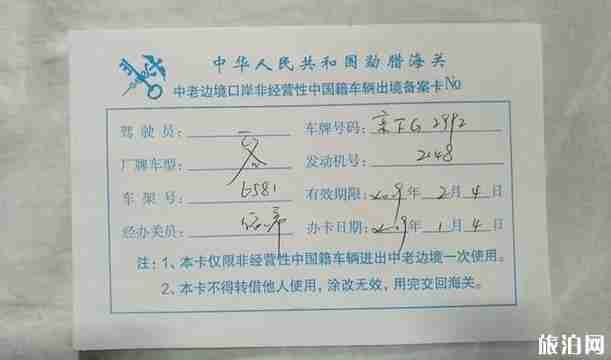 中华人民共和国勐腊海关
中老边境口岸非经营性中国籍车辆出境备案卡No
驾驶员: 车牌号码: 京FG2992
厂牌车型: 发动机号: 2148
车架号: 6581 有效期限: 2019年2月4日
经办关员: 办卡日期: 2019年1月4日
注:1、本卡仅限非经营性中国籍车辆进出中老边境一次使用。
2、本卡不得转借他人使用,涂改无效,用完交回海关。
旅泊网